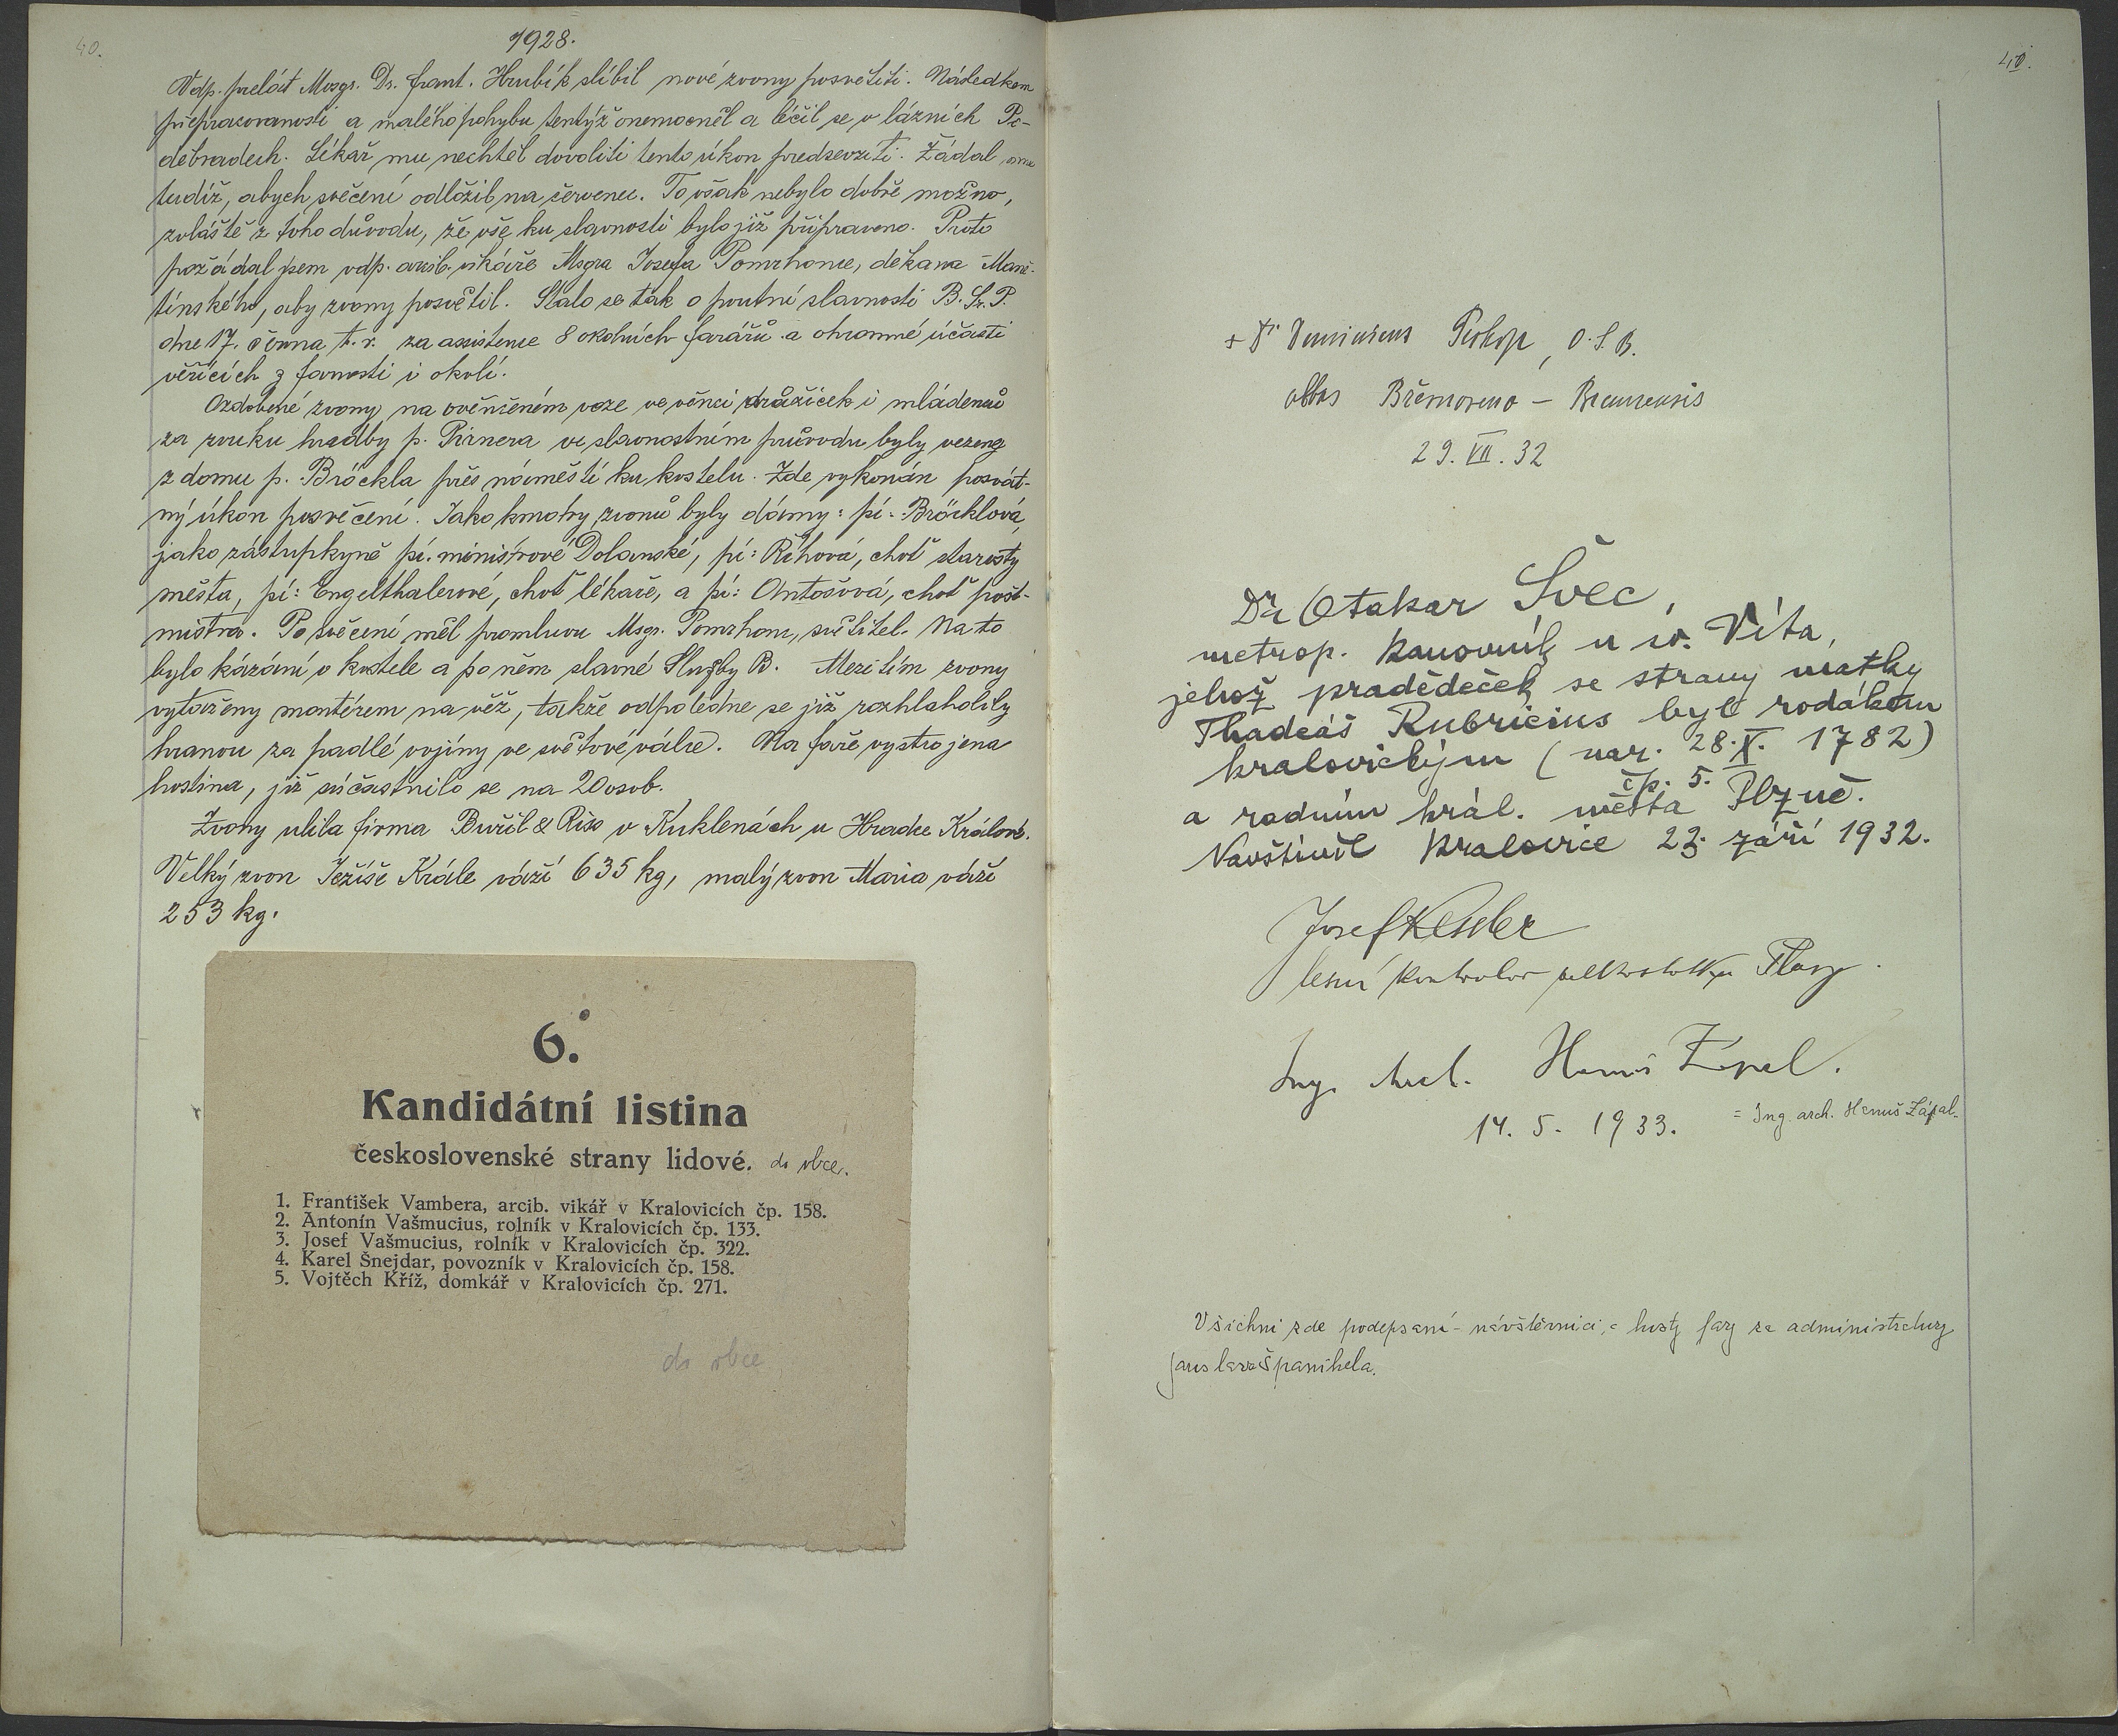 40.
1928.
Vdp. prelát Msgr. Dr. Frant. Hrubík slíbil nové zvony posvětiti. Následkem
přepracovanosti a malého pohybu tentýž onemocněl a léčil se v lázních Po-
děbradech. Lékař mu nechtěl dovoliti tento úkon předsevzíti. Žádal mne
tudíž, abych svěcení odložil na červenec. To však nebylo dobře možno,
zvláště z toho důvodu, že vše ku slavnosti bylo již připraveno. Proto
požádal jsem vdp. arcib. vikáře Msgra Josefa Pomrhonce, děkana Mane-
tínského, aby zvony posvětil. Stalo se tak o poutní slavnosti B. Sr. P.
dne 17. června t. r. za assistence 8 okolních farářů a ohromné účasti
věřících z farnosti i okolí.
Ozdobené zvony na ověnčeném voze ve věnci družiček i mládenců
za zvuku hudby p. Pirnera ve slavnostním průvodu byly vezeny
z domu p. Bröckla přes náměstí ku kostelu. Zde vykonán posvát-
ný úkon posvěcení. Jako kmotry zvonů byly dámy: pí. Bröcklová,
jako zástupkyně pí. ministrové Dolanské, pí: Říhová, choť starosty
města, pí: Engelthalerové, choť lékaře, a pí: Antošová, choť pošt-
mistra. Po svěcení měl promluvu Msgr. Pomrhonc, světitel. Na to
bylo kázání v kostele a po něm slavné Služby B. Mezitím zvony
vytaženy montérem na věž, takže odpoledne se již rozhlaholily
hranou za padlé vojíny ve světové válce. Na faře vystrojena
hostina, jíž súčastnilo se na 20 osob.
Zvony ulila firma Buřil & Riss v Kuklenách u Hradce Králové.
Velký zvon Ježíše Krále váží 635 kg, malý zvon Maria váží
253 kg.
6.
Kandidátní listina
československé strany lidové. do obce.
1. František Vambera, arcib. vikář v Kralovicích čp. 158.
2. Antonín Vašmucius, rolník v Kralovicích čp. 133.
3. Josef Vašmucius, rolník v Kralovicích čp. 322.
4. Karel Šnejdar, povozník v Kralovicích čp. 158.
5. Vojtěch Kříž, domkář v Kralovicích čp. 271.
do obce
+ Dominicus Prokop, O.S.B.
abbas Břevnoveno - Braunensis
29. VII. 32
Dr Otakar Švec,
metrop. kanovník u sv. Víta,
jehož pradědeček se strany matky
Thadeáš Rubricius byl rodákem
kralovickým (nar. 28. X. 1782)
čp. 5.
a radním král. města Plzně.
Navštívil Kralovice 23. září 1932.
Josef Kessler
lesní kontrolor velkostatku Plasy.
Ing. Arch. Hanuš Zápal.
14. 5. 1933.
= Ing. arch. Hanuš Zápal.
Všichni zde podepsaní - návštěvníci, = hosty fary za administratury
Jaroslava Španihela.